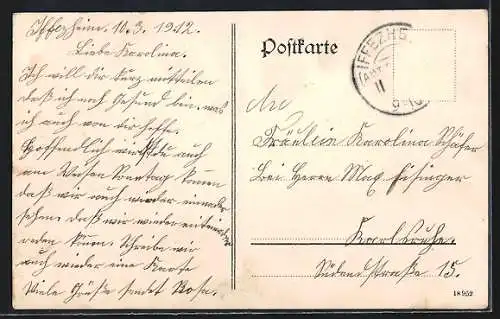 Iffezheim, 10.3.1912.
Liebe Karolina.
Ich will dir kurz mitteilen
daß ich noch Gesund bin, was
ich auch von dir hoffe.
Hoffendlich wirst du auch
am Weisen Sonntag kommen
daß wir auch wieder einander
sehen. daß wir wieder miteinander
reden könen. Schreibe mir
auch wieder eine Karte
Viele Grüße sendet Rosa.
Postkarte
IFFEZHE
11
9-10
An
Fräulein Karolina Schäfer
bei Herrn Max Eisinger
Karlsruhe.
Südendstraße 15.
18952